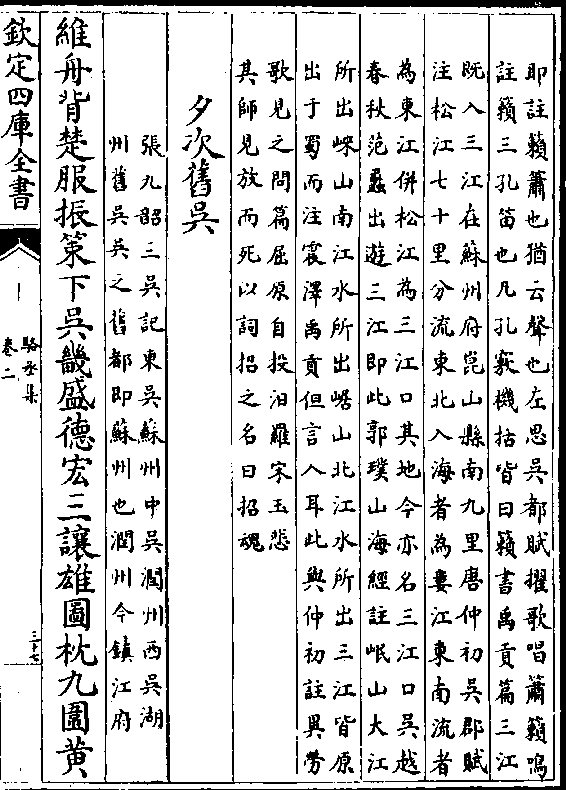 即註籟簫也猶云聲也左思吳都賦擢歌唱簫籟鳴
註籟三孔笛也凡孔竅機括皆曰籟書禹貢篇三江
既入三江在蘇州府崑山縣南九里唐仲初吳郡賦
注松江七十里分流東北入海者為婁江東南流者
為東江併松江為三江口其地今亦名三江口吳越
春秋范蠡出遊三江即此郭璞山海經註岷山大江
所出崍山南江水所出崌山北江水所出三江皆原
出于蜀而注震澤禹貢但言入耳此與仲初註異勞
歌見之問篇屈原自投汨羅宋玉悲
其師見放而死以詞招之名曰招魂
夕次舊吳
張九韶三吳記東吳蘇州中吳潤州西吳湖
州舊吳吳之舊都即蘇州也潤州今鎮江府
維舟背楚服振策下吳畿盛德宏三讓雄圖枕九圍黄
欽定四庫全書
駱丞集
卷二
三十七